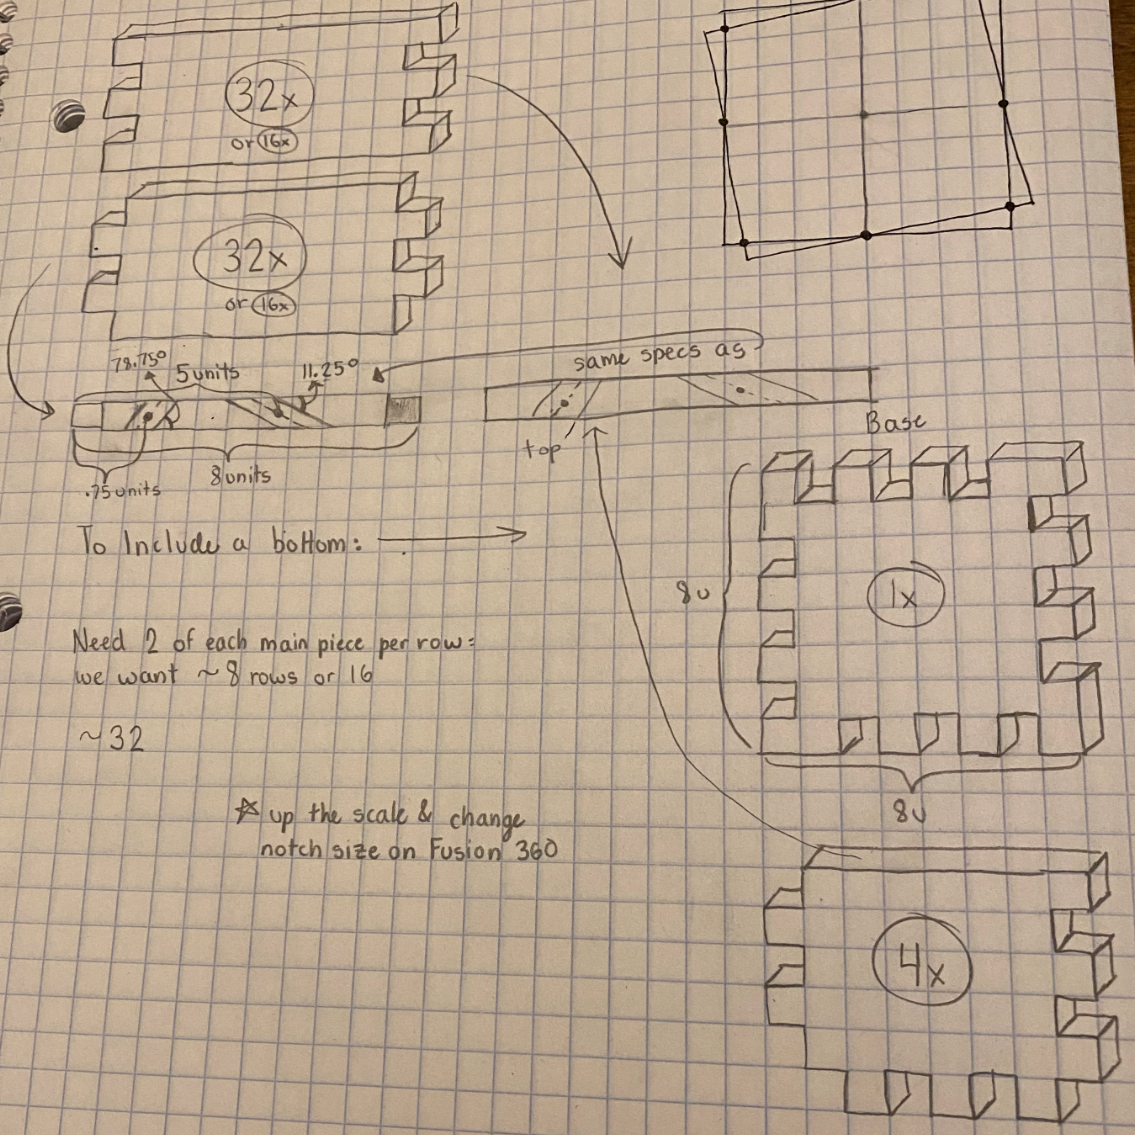 32x
or 16x
32x
or 16x
78.75°
5 units
11.25°
same specs as
top
Base
.75 units
8 units
To Include a bottom:
8u
1x
Need 2 of each main piece per row:
we want ~8 rows or 16
~32
8u
☆ up the scale & change
notch size on Fusion 360
4x